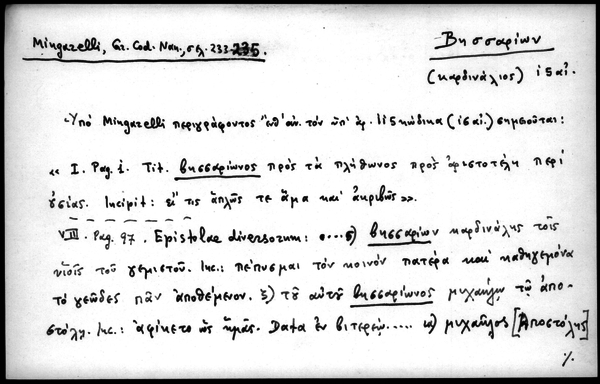 Mingarelli, Gr. Cod. Nan., σελ. 233-235.
Βησσαρίων
(καρδινάλιος) ιεαἰ.
Ὑπό Mingarelli περιγράφοντος ἐνθ' ἀν. τόν ὑπ' ἀρ. κώδικα (ιεαἰ.) σημειοῦται:
« I. Pag. 1. Tit. βησσαρίωνος πρὸς τὰ πλήθωνος πρὸς ἀριστοτέλη περί
οὐσίας. Incipit: εἴ τις ἁπλῶς τε ἅμα καί ἀκριβῶς».
VIII. Pag. 97. Epistolae diversorum: ....ε) βησσαρίων καρδινάλης τοῖς
υἱοῖς τοῦ γεμιστοῦ. Inc.: πέπυσμαι τὸν κοινὸν πατέρα καί καθηγεμόνα
τό γεῶδες πᾶν ἀποθέμενον. ξ) τοῦ αὐτοῦ βησσαρίωνος μιχαήλῳ τῷ ἀπο-
στόλῃ. Inc.: ἀφίκετο ὡς ἡμᾶς. Data ἐν βιτερβίῳ.... μιχαῆλος [Ἀποστόλης]
./.